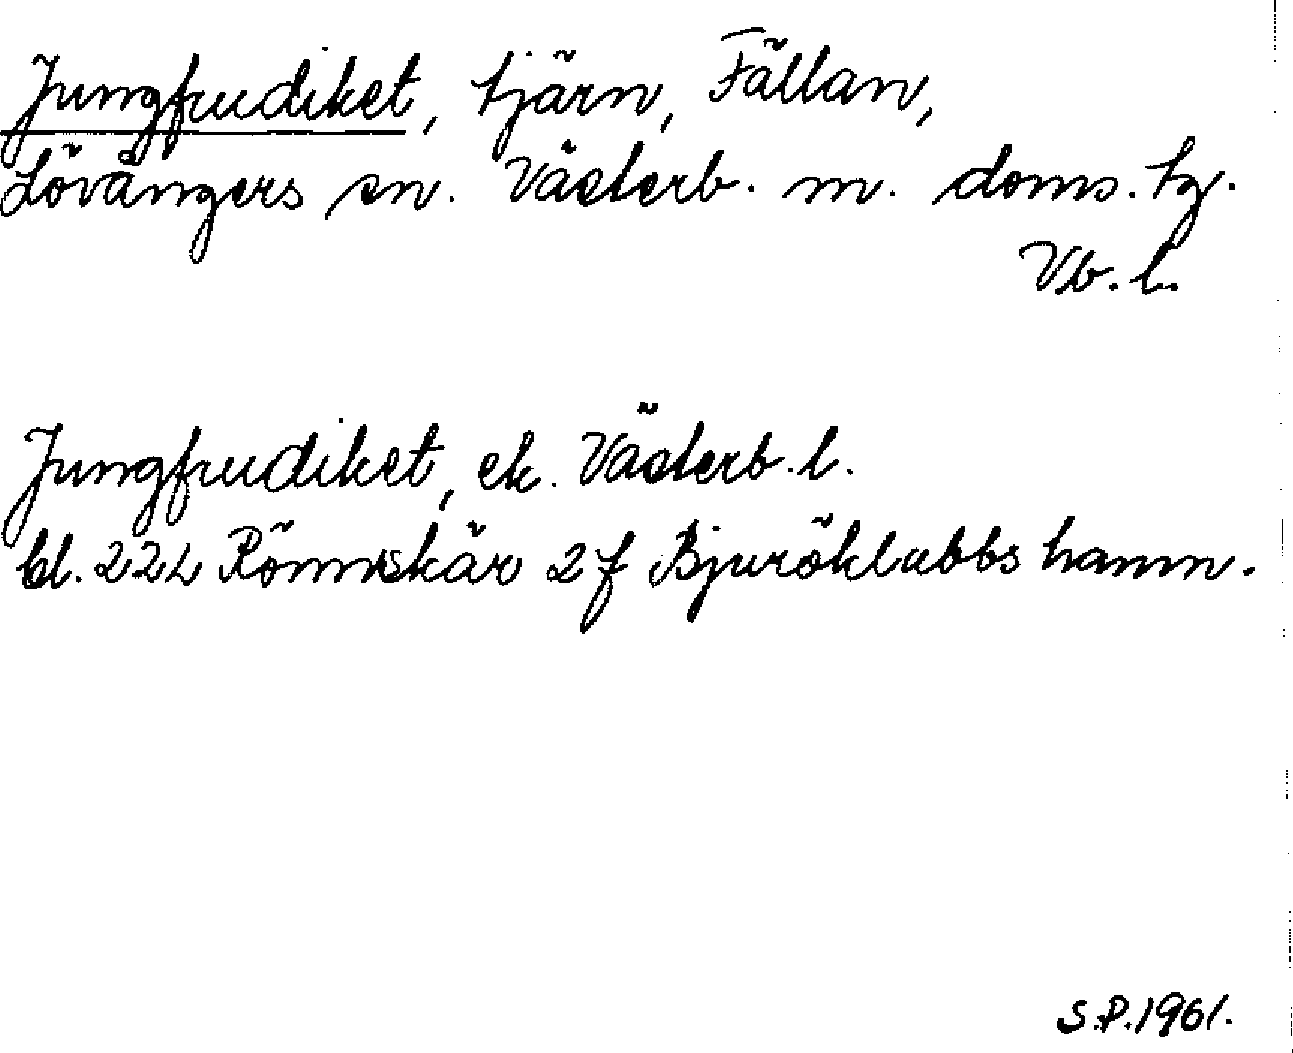 Jungfrudiket, tjärn, Fällan,
Lövångers sn. Västerb. m. doms. tg.
Vb. l.
Jungfrudiket, ek. Västerb. l.
bl. 22L Rönnskär 2f Bjuröklubbs hamn.
S.P. 1961.